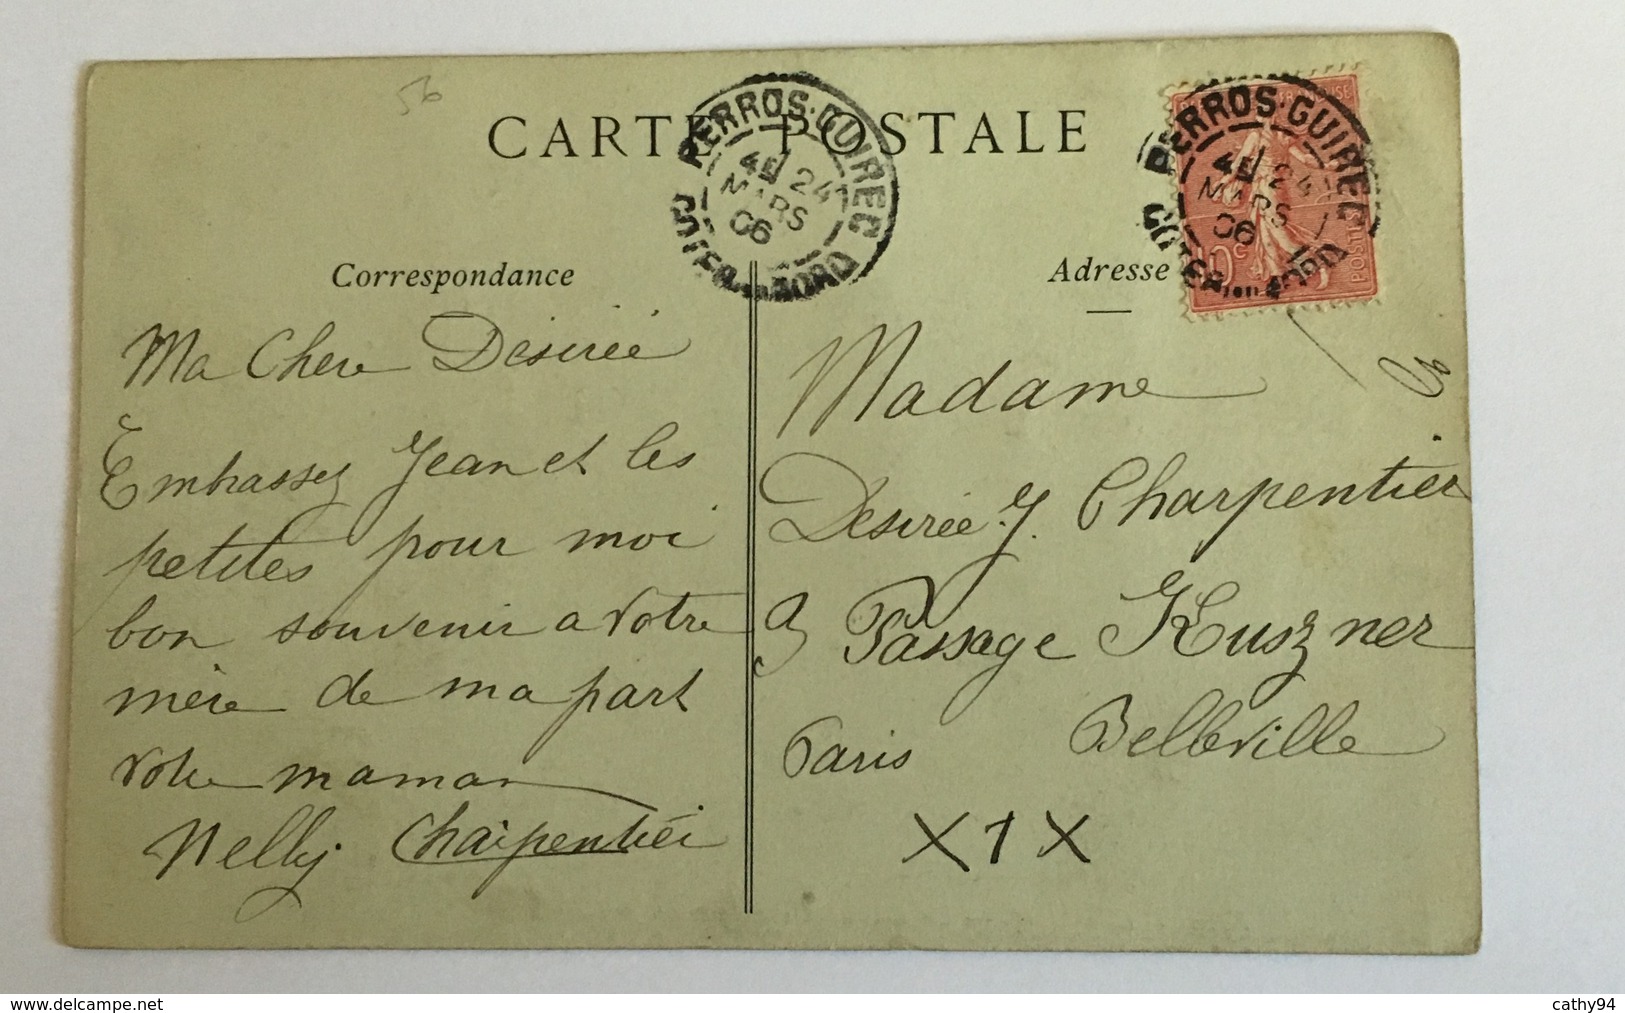 56
CARTE POSTALE
PERROS-GUIREC
4E 24
MARS
06
COTES DU NORD
PERROS-GUIREC
4E 24
MARS
06
COTES DU NORD
Correspondance
Ma Chere Désirée
Embrassez Jean et les
petites pour moi
bon souvenir a votre
mère de ma part
votre maman
Nelly Charpentier
Adresse
Madame
Désirée J. Charpentier
9 Passage Kuszner
Paris Belleville
X1X
cathy94
delcampe.net